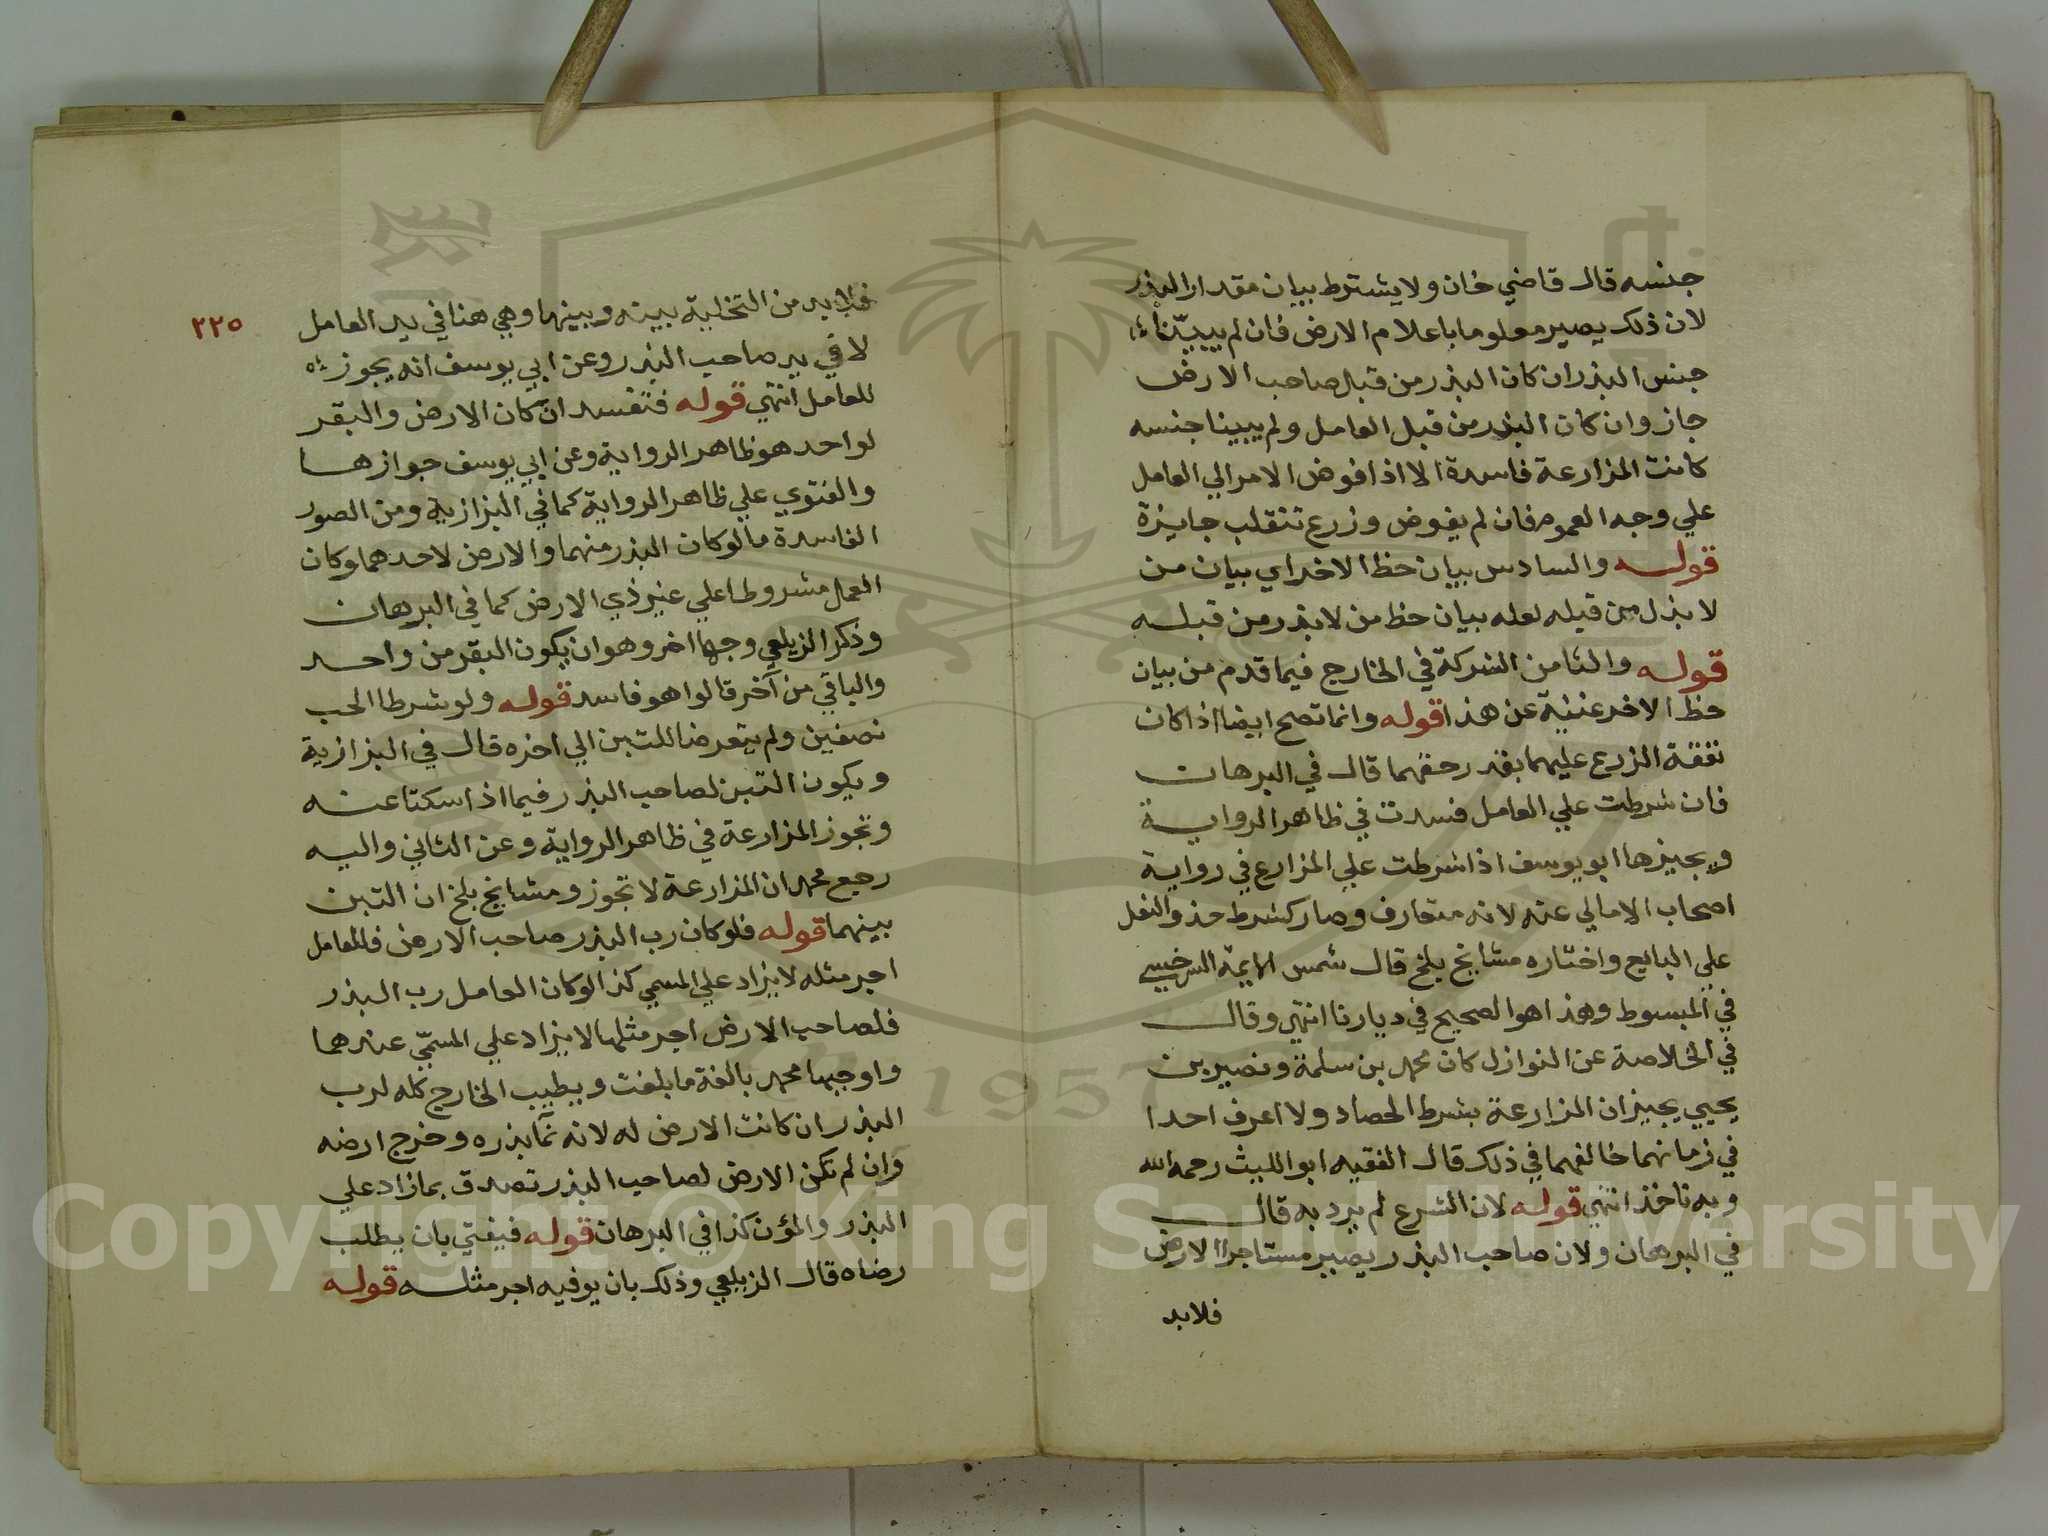 جنسه قال قاضي خان ولا يشترط بيان مقدار البذر
لان ذلك يصير معلوما باعلام الارض فان لم يبيّنا
جنس البذر ان كان البذر من قبل صاحب الارض
جاز وان كان البذر من قبل العامل ولم يبينا جنسه
كانت المزارعة فاسدة الا اذا فوض الامر الي العامل
علي وجه العموم فان لم يفوض وزرع تنقلب جايزة
قوله والسادس بيان حظ الاخر اي بيان من
لا بذل من قبله لعله بيان حظ من لا بذر من قبله
قوله والثامن الشركة في الخارج فيما قدم من بيان
حظ الاخر غنية عن هذا قوله وانما تصح ايضا اذا كان
نفقة الزرع عليهما بقدر حقهما قال في البرهان
فان شرطت علي العامل فسدت في ظاهر الرواية
ويجيزها ابو يوسف اذا شرطت علي المزارع في رواية
اصحاب الامالي عنه لانه متعارف وصار كشرط حذو النعل
علي البايع واختاره مشايخ بلخ قال شمس الايمة السرخسي
في المبسوط وهذا هو الصحيح في ديارنا انتهي وقال
في الخلاصة عن النوازل كان محمد بن سلمة ونصير بن
يحيي يجيزان المزارعة بشرط الحصاد ولا اعرف احدا
في زمانهما خالفهما في ذلك قال الفقيه ابو الليث رحمه الله
وبه ناخذ انتهي قوله لان الشرع لم يرد به قال
في البرهان ولان صاحب البذر يصير مستاجرا الارض
فلابد
٢٢٥
فلابد من التخلية بينه وبينها وهي هنا في يد العامل
لا في يد صاحب البذر وعن ابي يوسف انه يجوز
للعامل انتهي قوله فتفسد ان كان الارض والبقر
لواحد هو ظاهر الرواية وعن ابي يوسف جوازها
والفتوي علي ظاهر الرواية كما في البزازية ومن الصور
الفاسدة ما لو كان البذر منهما والارض لاحدهما وكان
العمل مشروطا علي غير ذي الارض كما في البرهان
وذكر الزيلعي وجها اخر وهو ان يكون البقر من واحد
والباقي من آخر قالوا هو فاسد قوله ولو شرطا الحب
نصفين ولم يتعرضا للتبن الي اخره قال في البزازية
ويكون التبن لصاحب البذر فيما اذا سكتا عنه
وتجوز المزارعة في ظاهر الرواية وعن الثاني واليه
رجع محمد ان المزارعة لا تجوز ومشايخ بلخ ان التبن
بينهما قوله فلو كان رب البذر صاحب الارض فللعامل
اجر مثله لا يزاد علي المسمي كذا لو كان العامل رب البذر
فلصاحب الارض اجر مثلها لا يزاد علي المسمّي عندهما
واوجبها محمد بالغة ما بلغت ويطيب الخارج كله لرب
البذر ان كانت الارض له لانه نما بذره وخرج ارضه
وان لم تكن الارض لصاحب البذر تصدق بما زاد علي
البذر والمؤن كذا في البرهان قوله فيفتي بان يطلب
رضاه قال الزيلعي وذلك بان يوفيه اجر مثله قوله
1957
Copyright © King Saud University